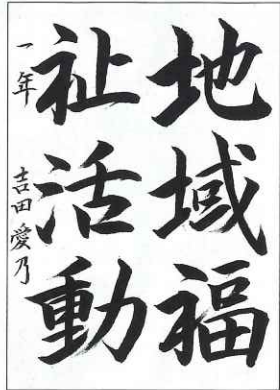 地域福
祉活動
一年 吉田愛乃